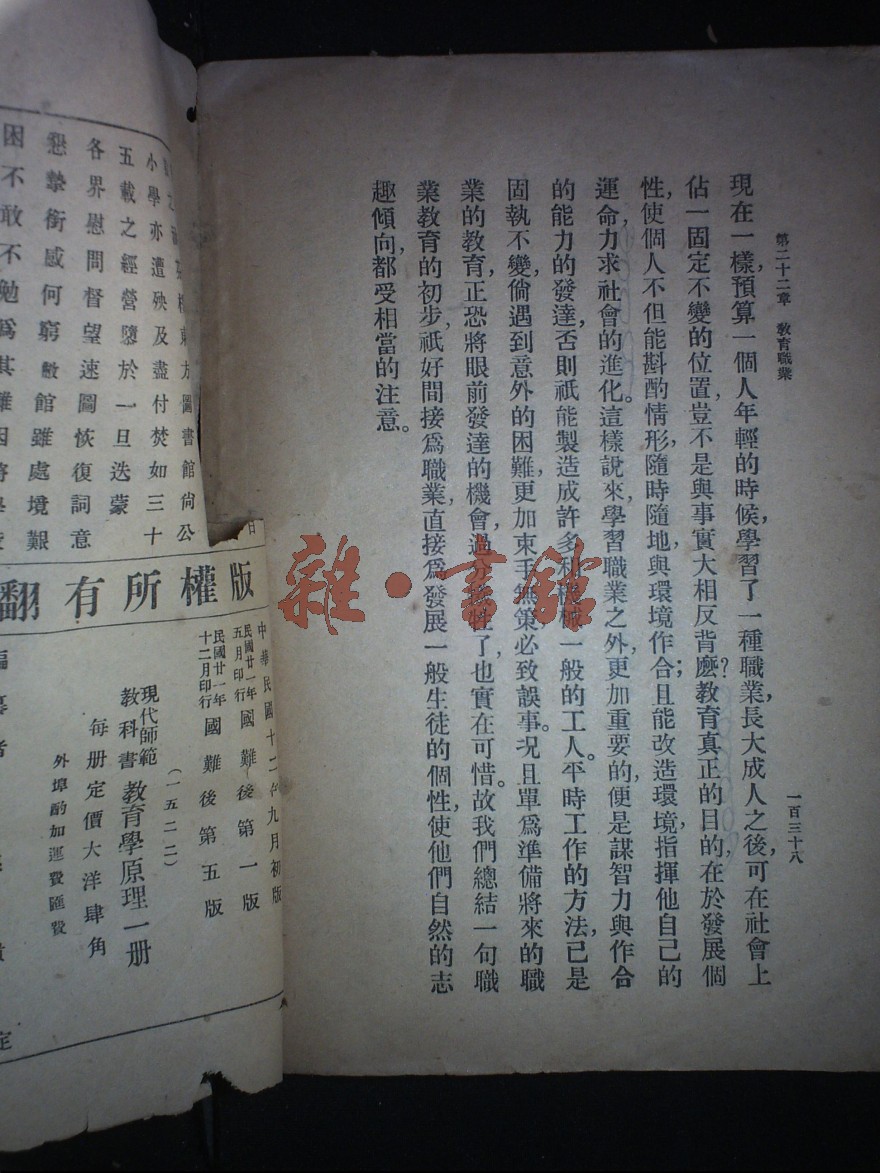 第二十二章　教育職業
一百三十八
現在一樣，預算一個人年輕的時候，學習了一種職業，長大成人之後，可在社會上
佔一固定不變的位置，豈不是與事實大相反背麼？教育真正的目的，在於發展個
性，使個人不但能斟酌情形，隨時隨地，與環境作合；且能改造環境，指揮他自己的
運命，力求社會的進化。這樣說來，學習職業之外，更加重要的，便是謀智力與作合
的能力的發達，否則祇能製造成許多和機械一般的工人。平時工作的方法，已是
固執不變，倘遇到意外的困難，更加束手無策，必致誤事。况且單爲準備將來的職
業的教育，正恐將眼前發達的機會，過分犧牲了，也實在可惜。故我們總結一句，職
業教育的初步，祇好間接爲職業，直接爲發展一般生徒的個性，使他們自然的志
趣傾向，都受相當的注意。
東方圖書館尙公
小學亦遭殃及盡付焚如三十
五載之經營墮於一旦迭蒙
各界慰問督望速圖恢復詞意
懇摯銜感何窮敝館雖處境艱
困不敢不勉爲其難因將
版權所有翻
中華民國十二年九月初版
民國廿一年五月印行國難後第一版
民國廿一年十二月印行國難後第五版
（一五二二）
現代師範教科書教育學原理一册
每册定價大洋肆角
外埠酌加運費匯費
編纂者
雜·書館